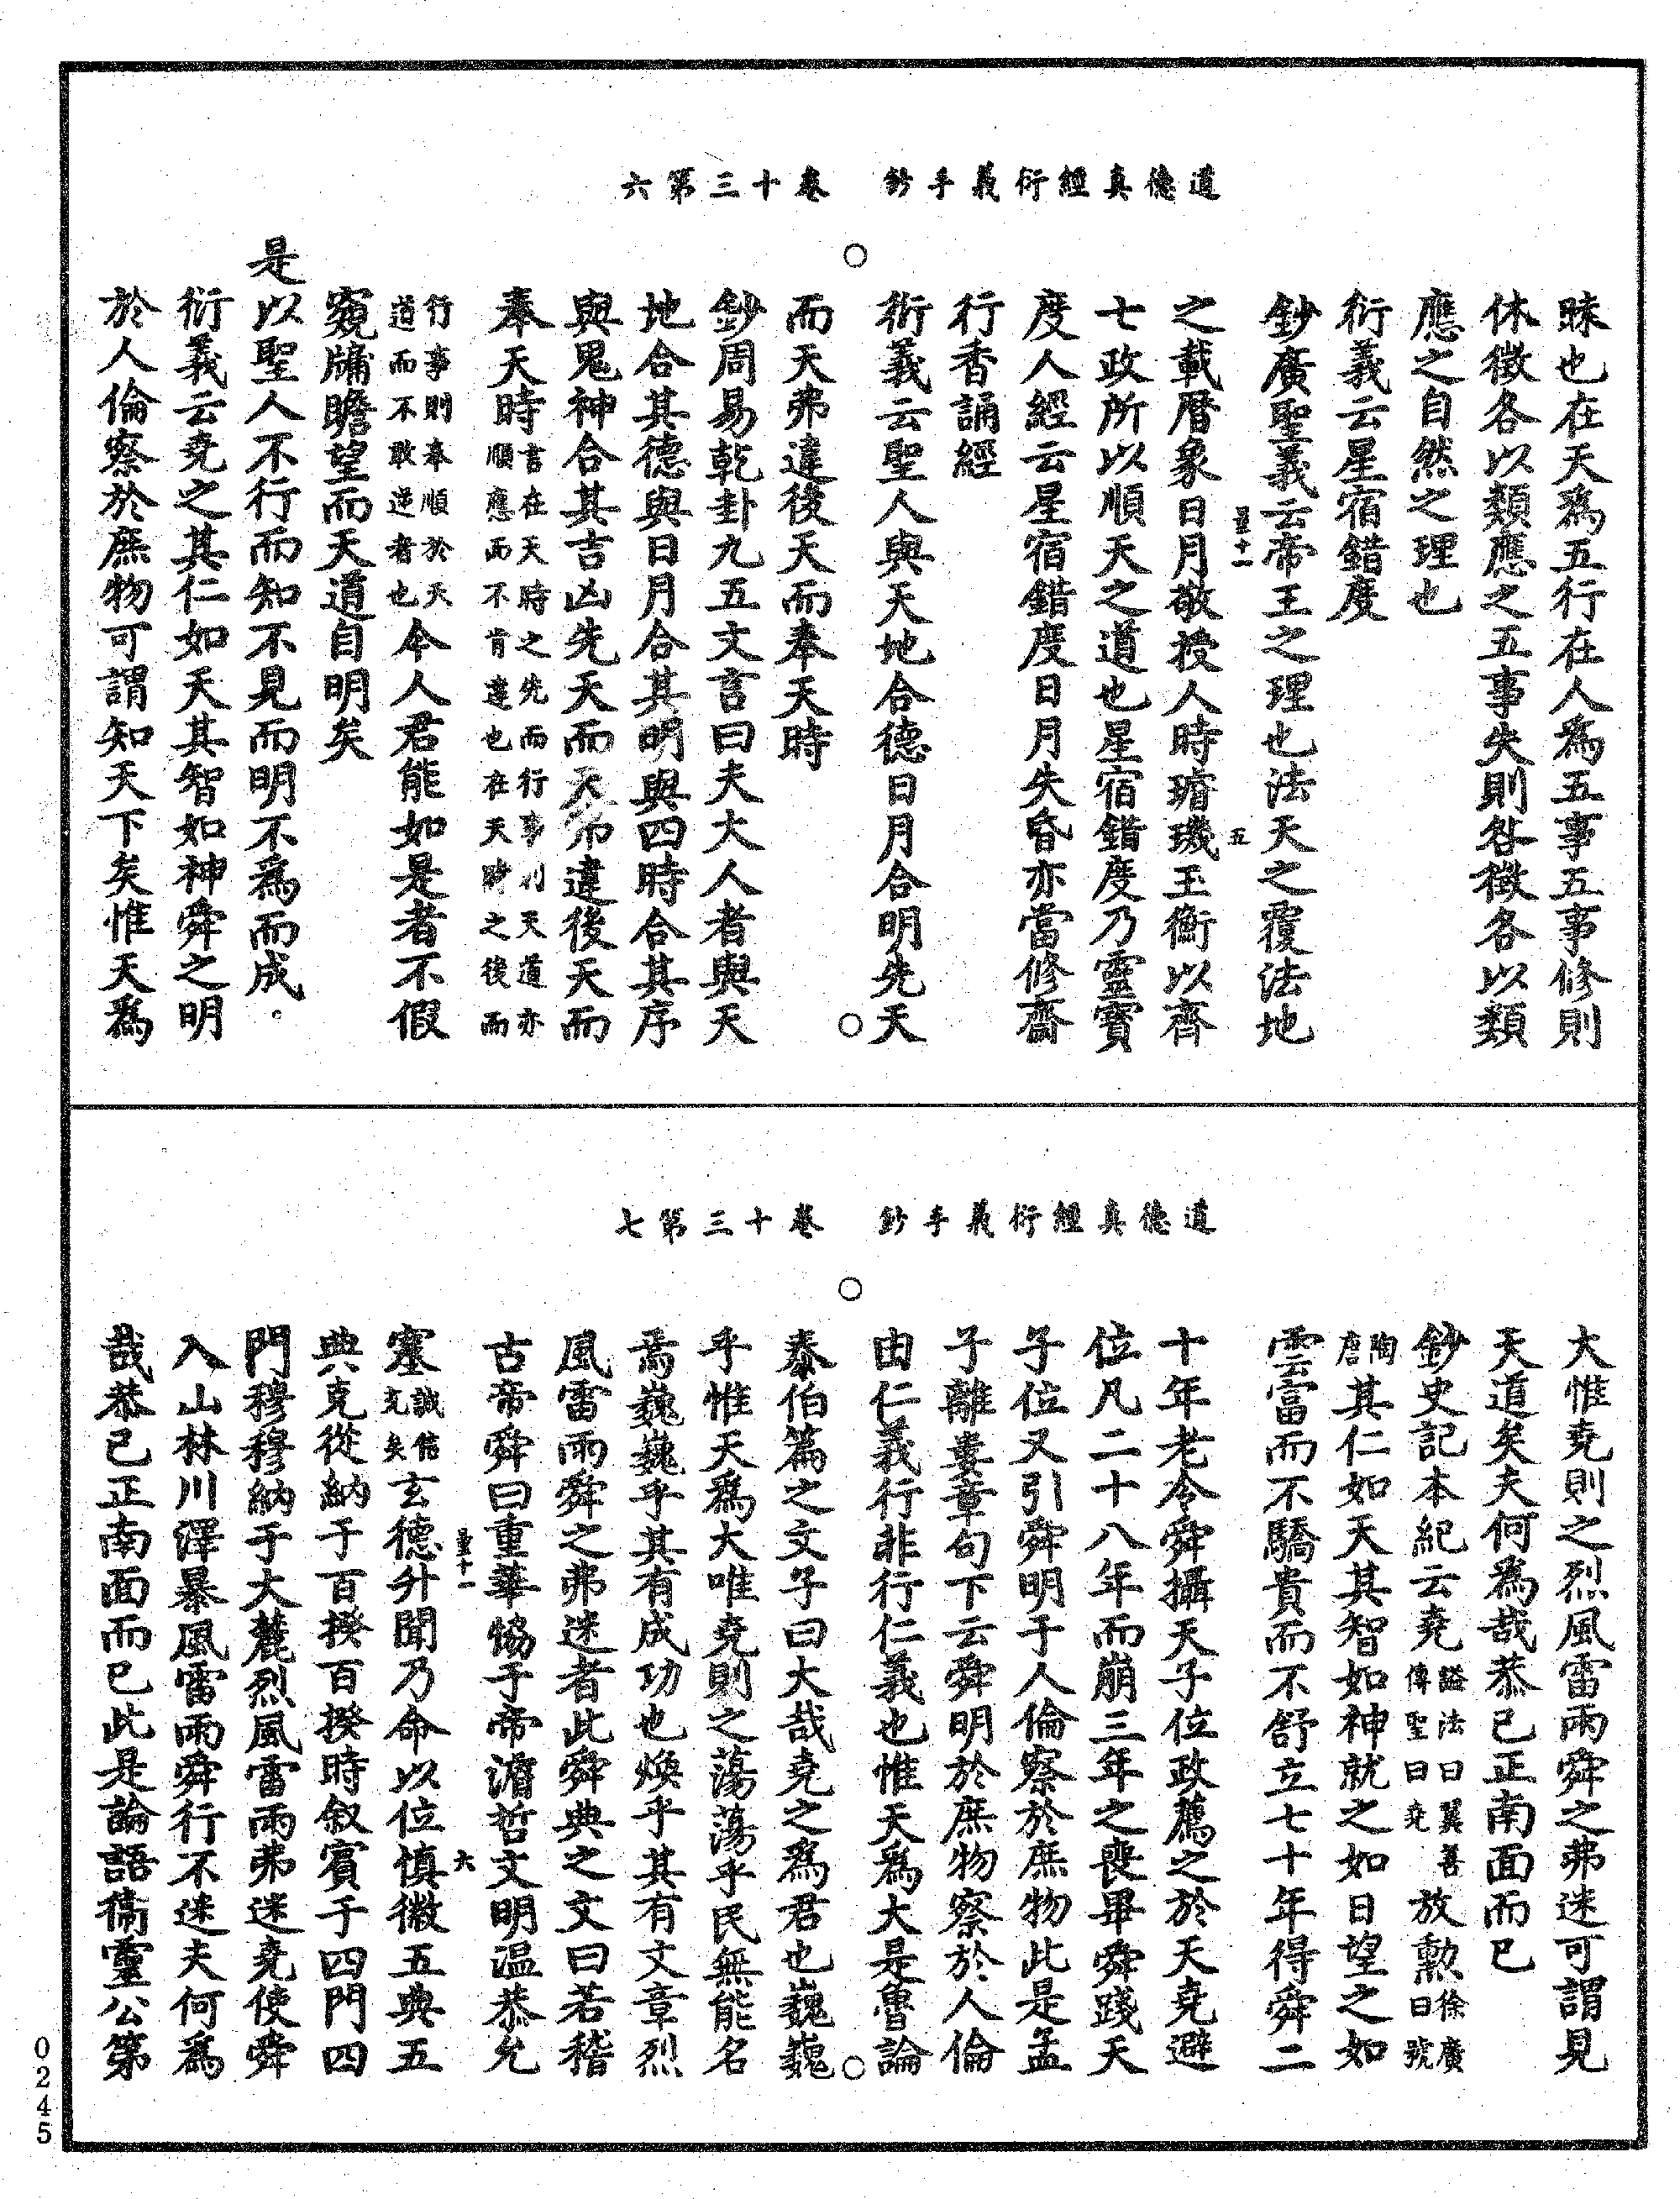 道德真經衍義手鈔　卷十三第六
昧也在天爲五行在人爲五事五事修則
休徵各以類應之五事失則咎徵各以類
應之自然之理也
衍義云星宿錯度
鈔廣聖義云帝王之理也法天之覆法地
量十一　五
之載曆象日月敬授人時璿璣玉衡以齊
七政所以順天之道也星宿錯度乃靈寶
度人經云星宿錯度日月失昏亦當修齋
行香誦經
衍義云聖人與天地合德日月合明先天
而天弗違後天而奉天時
鈔周易乾卦九五文言曰夫大人者與天
地合其德與日月合其明與四時合其序
與鬼神合其吉凶先天而天弗違後天而
奉天時言在天時之先而行事則天道亦順應而不肯違也在天時之後而
行事則奉順於天道而不敢逆者也今人君能如是者不假
窺牖瞻望而天道自明矣
是以聖人不行而知不見而明不爲而成。
衍義云堯之其仁如天其智如神舜之明
於人倫察於庶物可謂知天下矣惟天爲
道德真經衍義手鈔　卷十三第七
大惟堯則之烈風雷雨舜之弗迷可謂見
天道矣夫何爲哉恭己正南面而已
鈔史記本紀云堯謚法曰翼善傳聖曰堯放勳徐廣曰號
陶唐其仁如天其智如神就之如日望之如
雲富而不驕貴而不舒立七十年得舜二
十年老令舜攝天子位政薦之於天堯避
位凡二十八年而崩三年之喪畢舜踐天
子位又引舜明于人倫察於庶物此是孟
子離婁章句下云舜明於庶物察於人倫
由仁義行非行仁義也惟天爲大是魯論
泰伯篇之文子曰大哉堯之爲君也巍巍
乎惟天爲大唯堯則之蕩蕩乎民無能名
焉巍巍乎其有成功也煥乎其有文章烈
風雷雨舜之弗迷者此舜典之文曰若稽
古帝舜曰重華協于帝濬哲文明温恭允
量十一　六
塞誠信充矣玄德升聞乃命以位慎徽五典五
典克從納于百揆百揆時叙賓于四門四
門穆穆納于大麓烈風雷雨弗迷堯使舜
入山林川澤暴風雷雨舜行不迷夫何爲
哉恭己正南面而已此是論語衞靈公第
0245